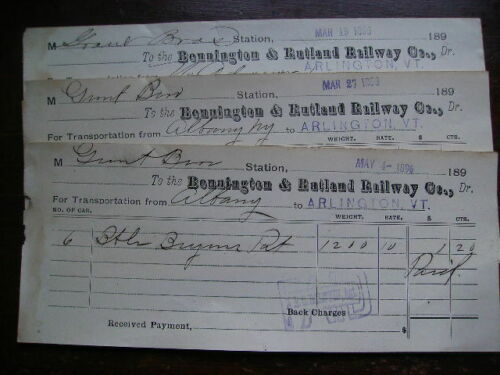 M Grant Bros Station, MAR 13 1896 189
To the Bennington & Rutland Railway Co., Dr.
ARLINGTON, VT.
M Grant Bros Station, MAR 27 1896 189
To the Bennington & Rutland Railway Co., Dr.
For Transportation from Albany NY to ARLINGTON, VT.
WEIGHT. RATE. $ CTS.
M Grant Bros Station, MAY 4- 1896 189
To the Bennington & Rutland Railway Co., Dr.
For Transportation from Albany to ARLINGTON, VT.
NO. OF CAR. WEIGHT. RATE. $ CTS.
6 1200 10 1 20
Paid.
Back Charges
Received Payment, $